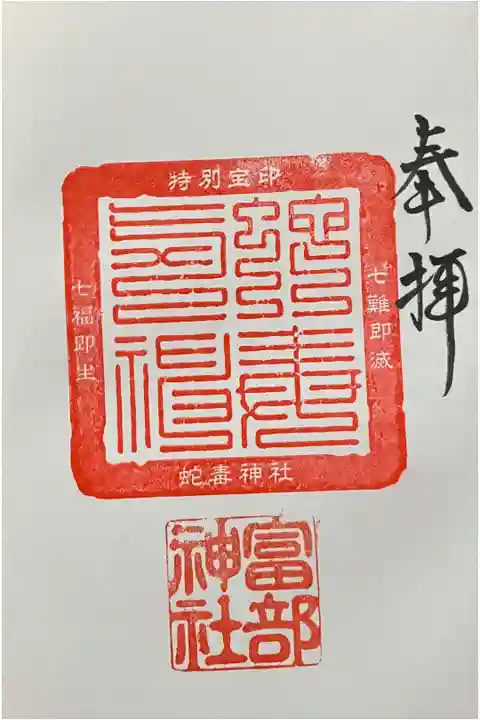 奉拝
特別宝印
七難即滅
七福即生
蛇毒神社
富部
神社